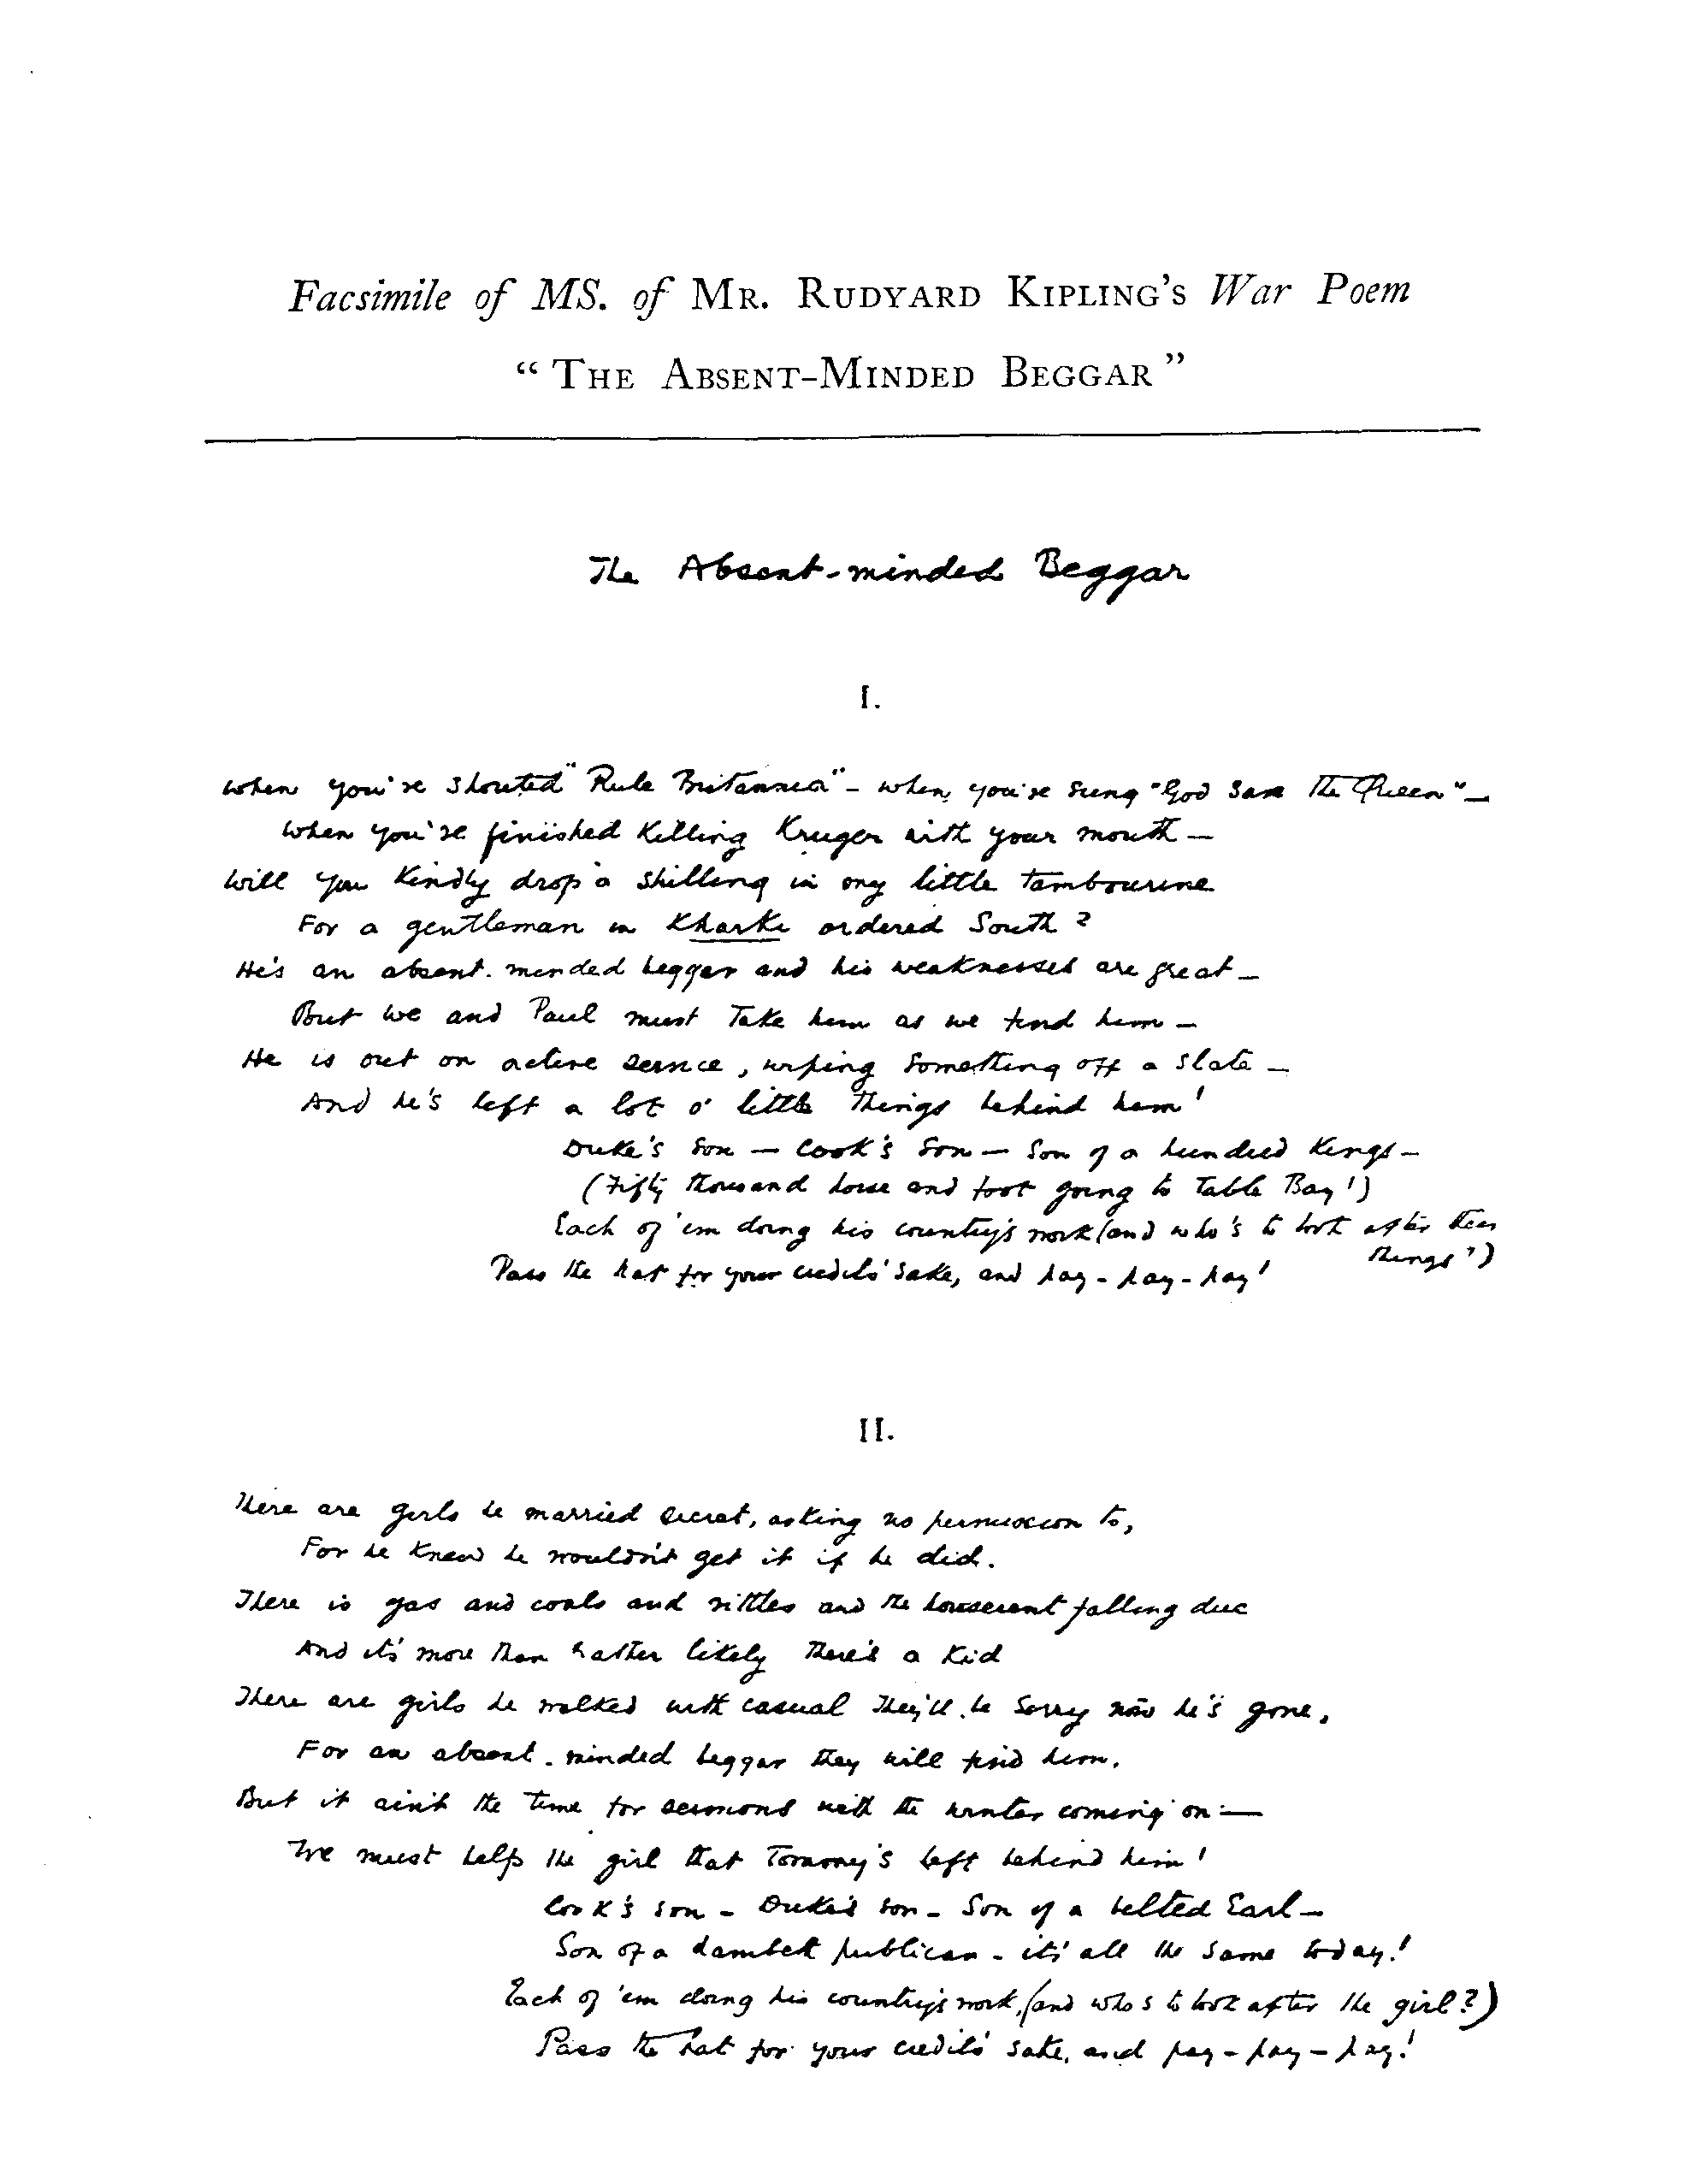 Facsimile of MS. of MR. RUDYARD KIPLING'S War Poem
"THE ABSENT-MINDED BEGGAR"
The Absent-minded Beggar
I.
When you've shouted "Rule Britannia" - when you've sung "God save the Queen" -
When you've finished killing Kruger with your mouth -
Will you kindly drop a shilling in my little tambourine
For a gentleman in Kharki ordered South?
He's an absent-minded beggar and his weaknesses are great -
But we and Paul must take him as we find him -
He is out on active service, wiping something off a slate -
And he's left a lot o' little things behind him!
Duke's son - Cook's son - Son of a hundred Kings -
(Fifty thousand horse and foot going to Table Bay!)
Each of 'em doing his country's work (and who's to look after their
things?)
Pass the hat for your credit's sake, and pay - pay - pay!
II.
There are girls he married secret, asking no permission to,
For he knew he wouldn't get it if he did.
There is gas and coals and vittles and the houserent falling due
And it's more than rather likely there's a kid
There are girls he walked with casual They'll be sorry now he's gone,
For an absent-minded beggar they will find him.
But it ain't the time for sermons with the winter coming on: -
We must help the girl that Tommy's left behind him!
Cook's son - Duke's son - Son of a belted Earl -
Son of a Lambeth publican - it's all the same today!
Each of 'em doing his country's work, (and who's to look after the girl?)
Pass the hat for your credit's sake, and pay - pay - pay!